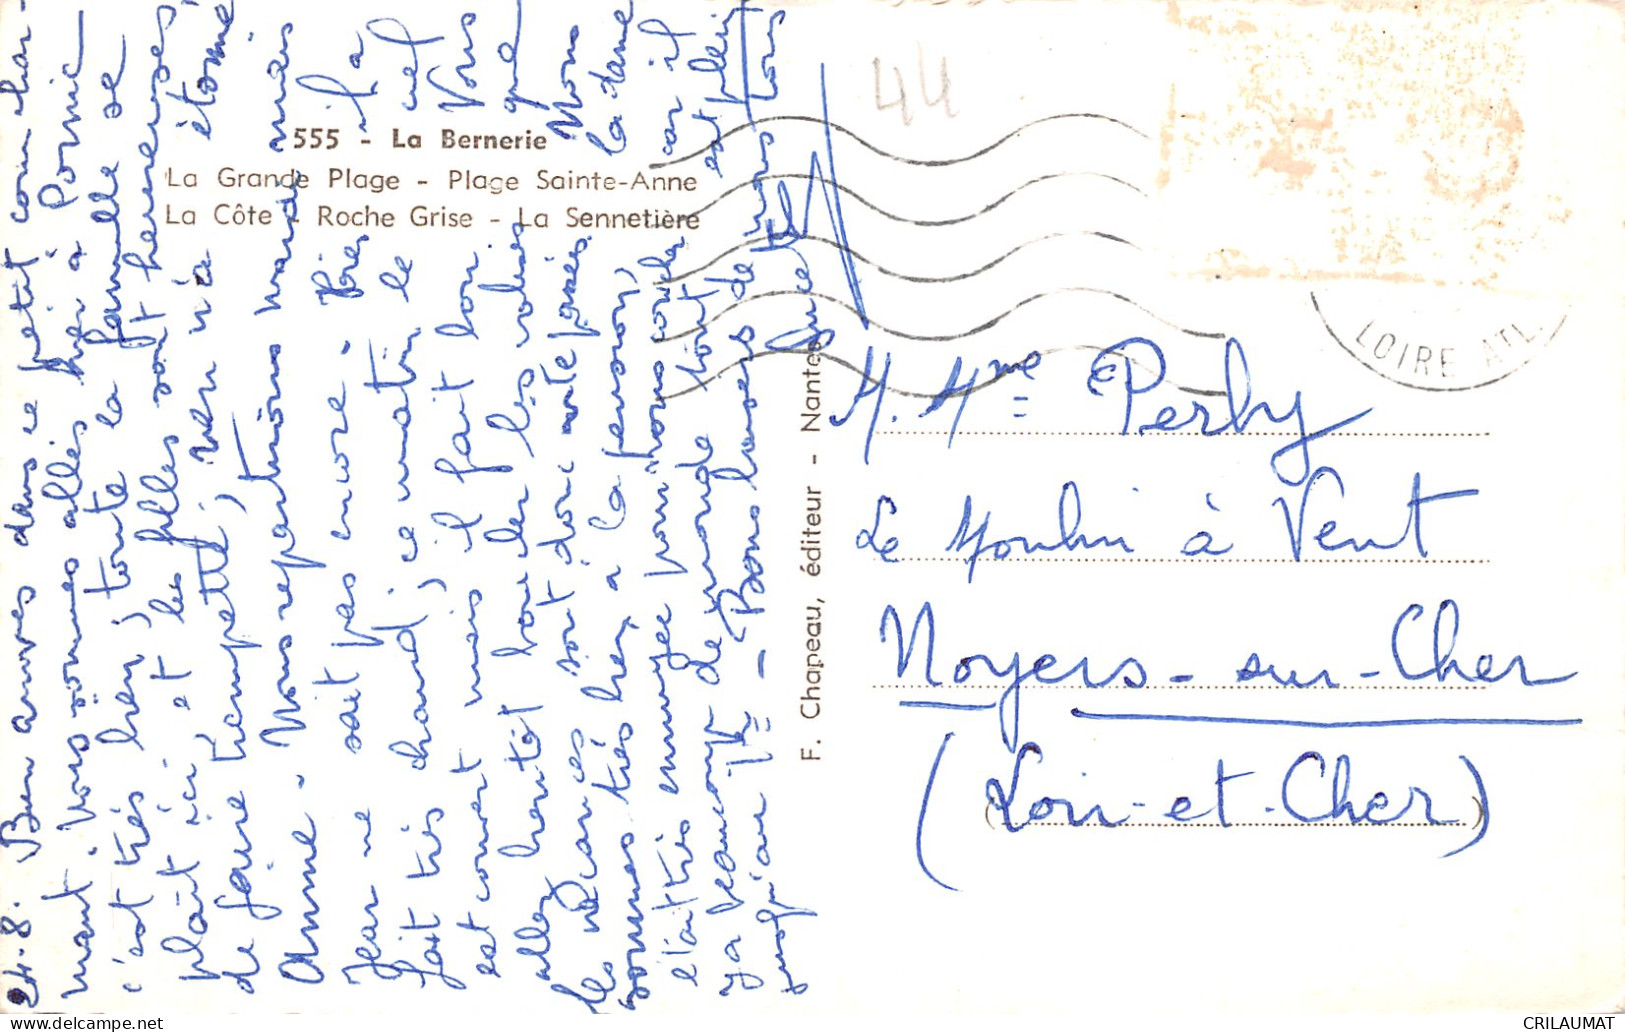 555 - La Bernerie
La Grande Plage - Plage Sainte-Anne
La Côte - Roche Grise - La Sennetière
24.8. Bien arrivés dans ce petit coin char-
mant. Nous sommes allés hier à Pornic
c'est très bien, toute la famille se
plaît ici, et les filles sont heureuses
de faire trempette; rien n'a étonné
Anne. Nous repartirons mardi mais
Jean ne sait pas encore. Hier il a
fait très chaud, ce matin le ciel
est couvert mais il fait bon. Vous
allez bientôt boucler les valises que
les vacances sont donc vite passées. Nous
sommes très bien à la pension, la dame
était très ennuyée pour nous coucher car il
y a beaucoup de monde, tout est plein
jusqu'au - Bons baisers de nous tous
F. Chapeau, éditeur - Nantes
44
LOIRE ATL.
M. Mme Perly
Le Moulin à Vent
Noyers-sur-Cher
(Loir-et-Cher)
CRILAUMAT